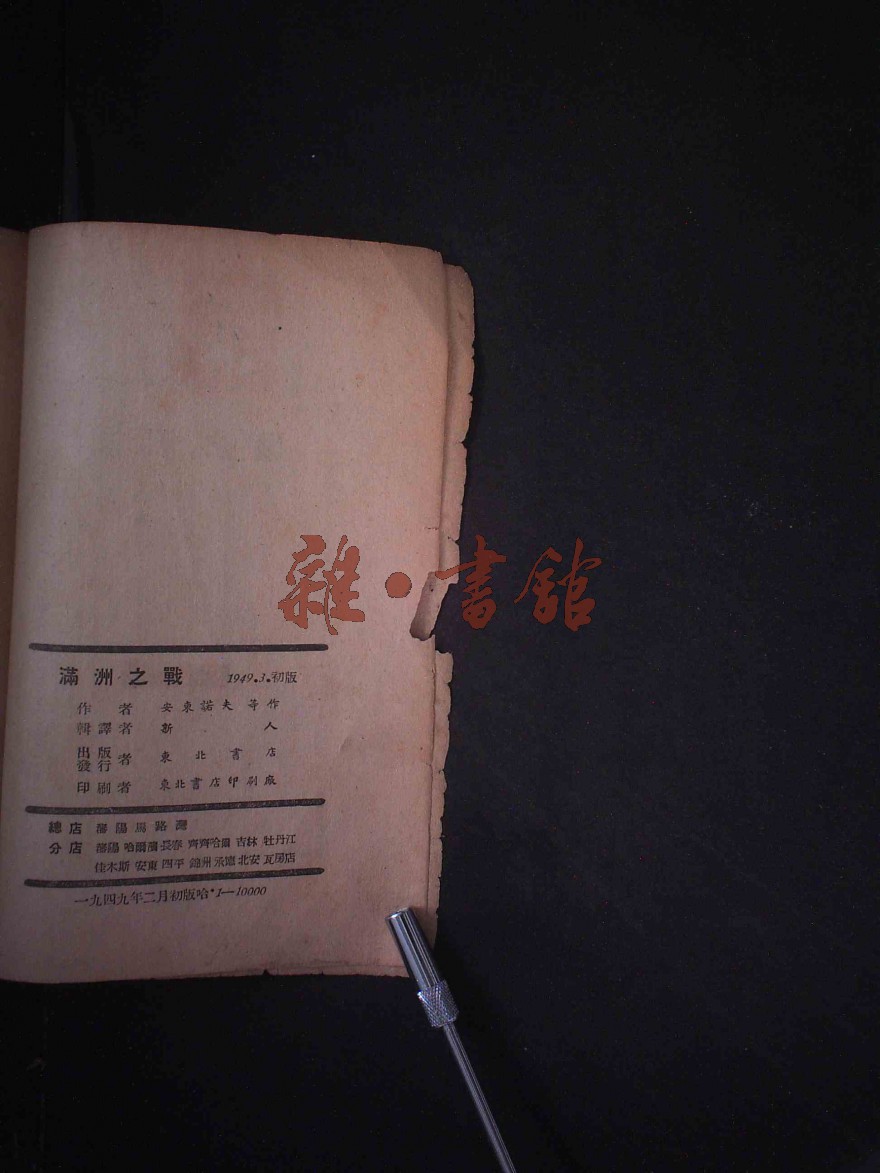 雜·書館
滿洲之戰 1949.3.初版
作者 安東諾夫等作
輯譯者 新人
出版發行者 東北書店
印刷者 東北書店印刷廠
總店 瀋陽馬路灣
分店 瀋陽 哈爾濱 長春 齊齊哈爾 吉林 牡丹江
佳木斯 安東 四平 錦州 承德 北安 瓦房店
一九四九年二月初版哈·1—10000